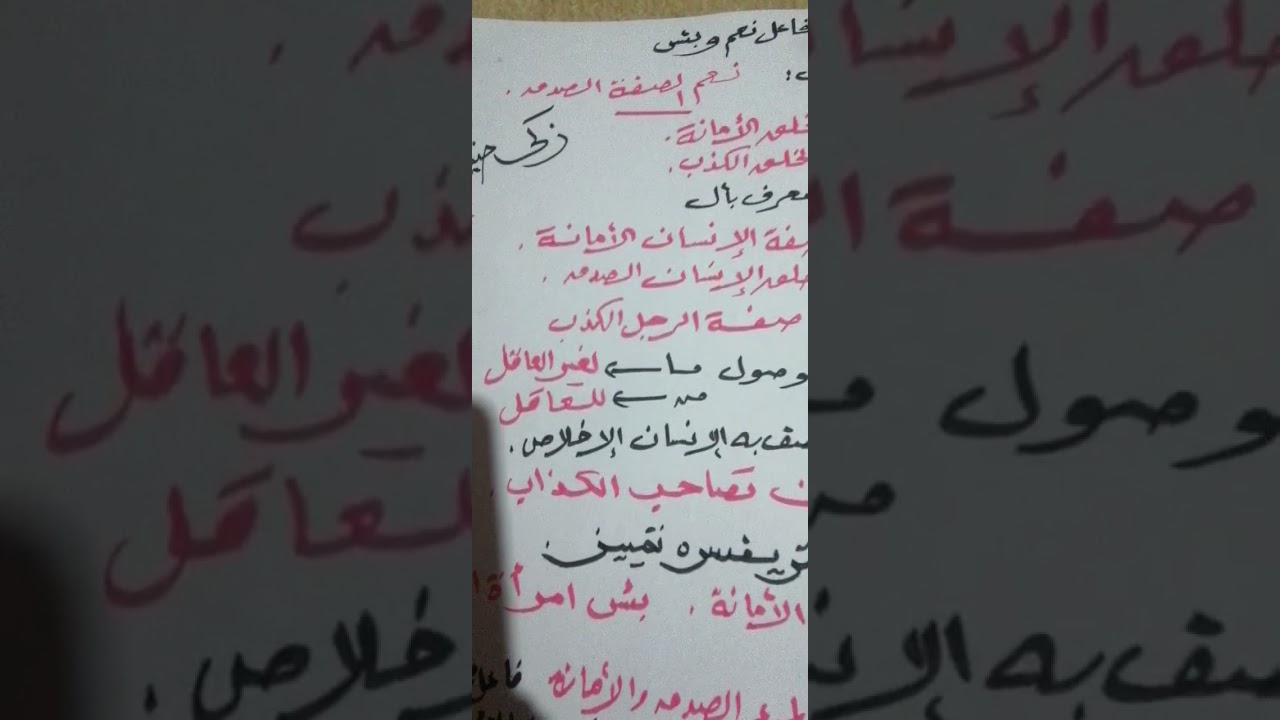 فاعل نعم وبئس
نعم الصفة الصدق.
خلق الأمانة.
الخلق الكذب.
زكى
معرف بأل
صفة الإنسان الأمانة.
خلق الإنسان الصدق.
صفة الرجل الكذب
موصول ما ← لغير العاقل
من ← للعاقل
يتصف به الإنسان الإخلاص.
تصاحب الكذاب.
يفسره تمييز.
الأمانة. بئس امرأة
الصدق والأمانة فاعل